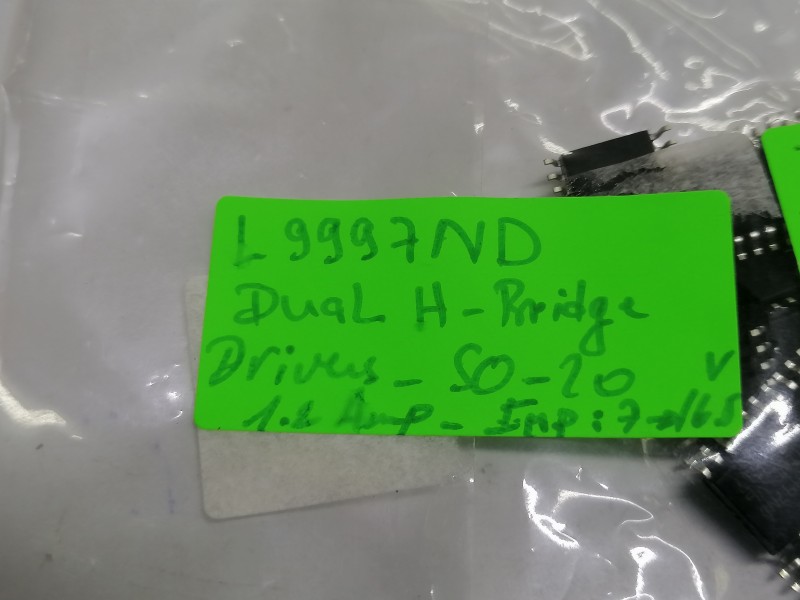 L9997ND
Dual H-Bridge
Drivers - SO-20
1.2 Amp - Inp: 7 → 16.5 V